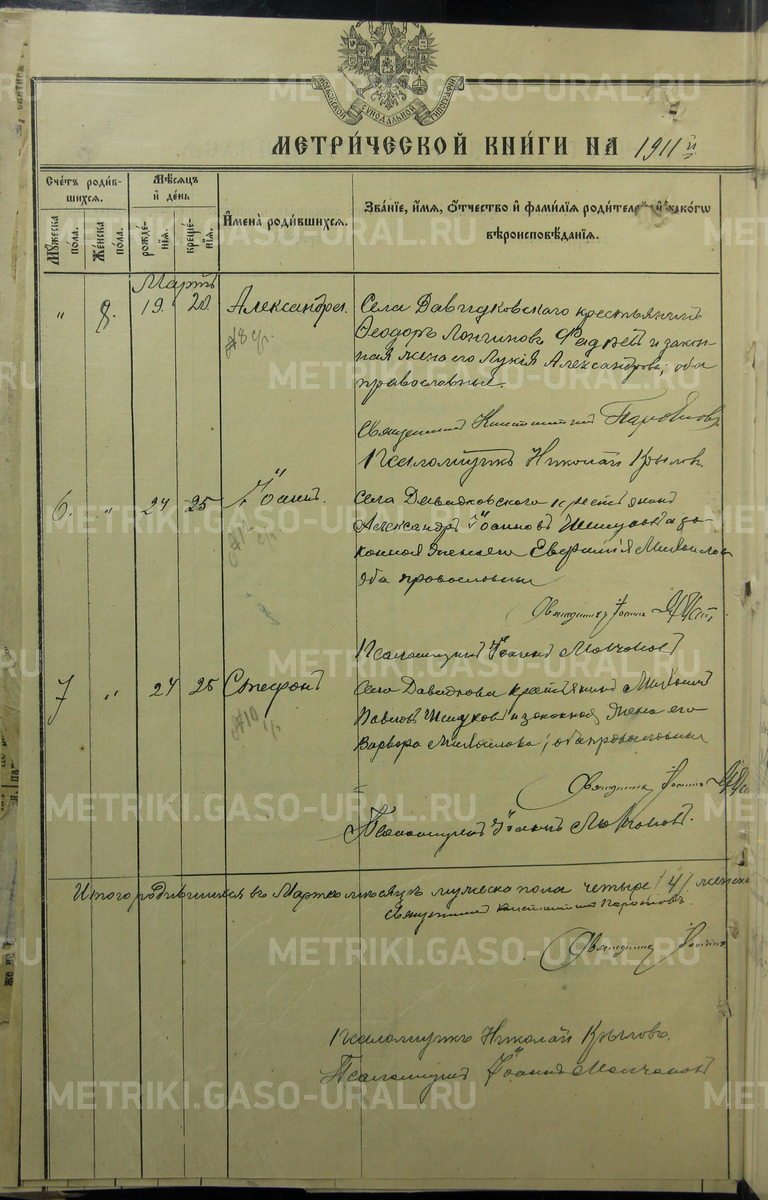 МОСКОВСКОЙ СѴНОДАЛЬНОЙ ТИПОГРАФІИ
МЕТРИ́ЧЕСКОЙ КНИ́ГИ НА 1911 й
Сче́тъ роди́вшихся.
Мꙋ́жеска по́ла.
Же́нска по́ла.
Мѣ́сяцъ и҆ де́нь
рожде́нїя.
креще́нїя.
И҆мена̀ роди́вшихся.
Зва́нїе, и҆́мя, ѻ҆́тчество и҆ фами́лїя роди́телей, и҆ какого̀
вѣроисповѣ́данїя.
Мартъ
" 8. 19. 20. Александра.
Села Давыдковскаго крестьянинъ
Ѳеодоръ Лонгиновъ и закон-
ная жена его Лукія Александрова; оба
православные.
Священникъ Константинъ
Псаломщикъ Николай Крыловъ.
6. " 24 25 Іоаннъ.
Села Давыдковскаго крестьянинъ
Александръ Іоанновъ и за-
конная жена его Евфимія Михайлов
оба православные
Священникъ Іоаннъ
Псаломщикъ Іоаннъ Молчановъ
7 " 24 25 Стефанъ
Села Давыдкова крестьянинъ Михаилъ
Павловъ и законная жена его
Варвара Михайлова; оба православные
Священникъ Іоаннъ
Псаломщикъ Іоаннъ Молчановъ.
Итого родившихся въ Мартѣ мѣсяцѣ мужеска пола четыре /4/ женска
Священникъ Константинъ
Священникъ Іоаннъ
Псаломщикъ Николай Крыловъ.
Псаломщикъ Іоаннъ Молчановъ
METRIKI.GASO-URAL.RU